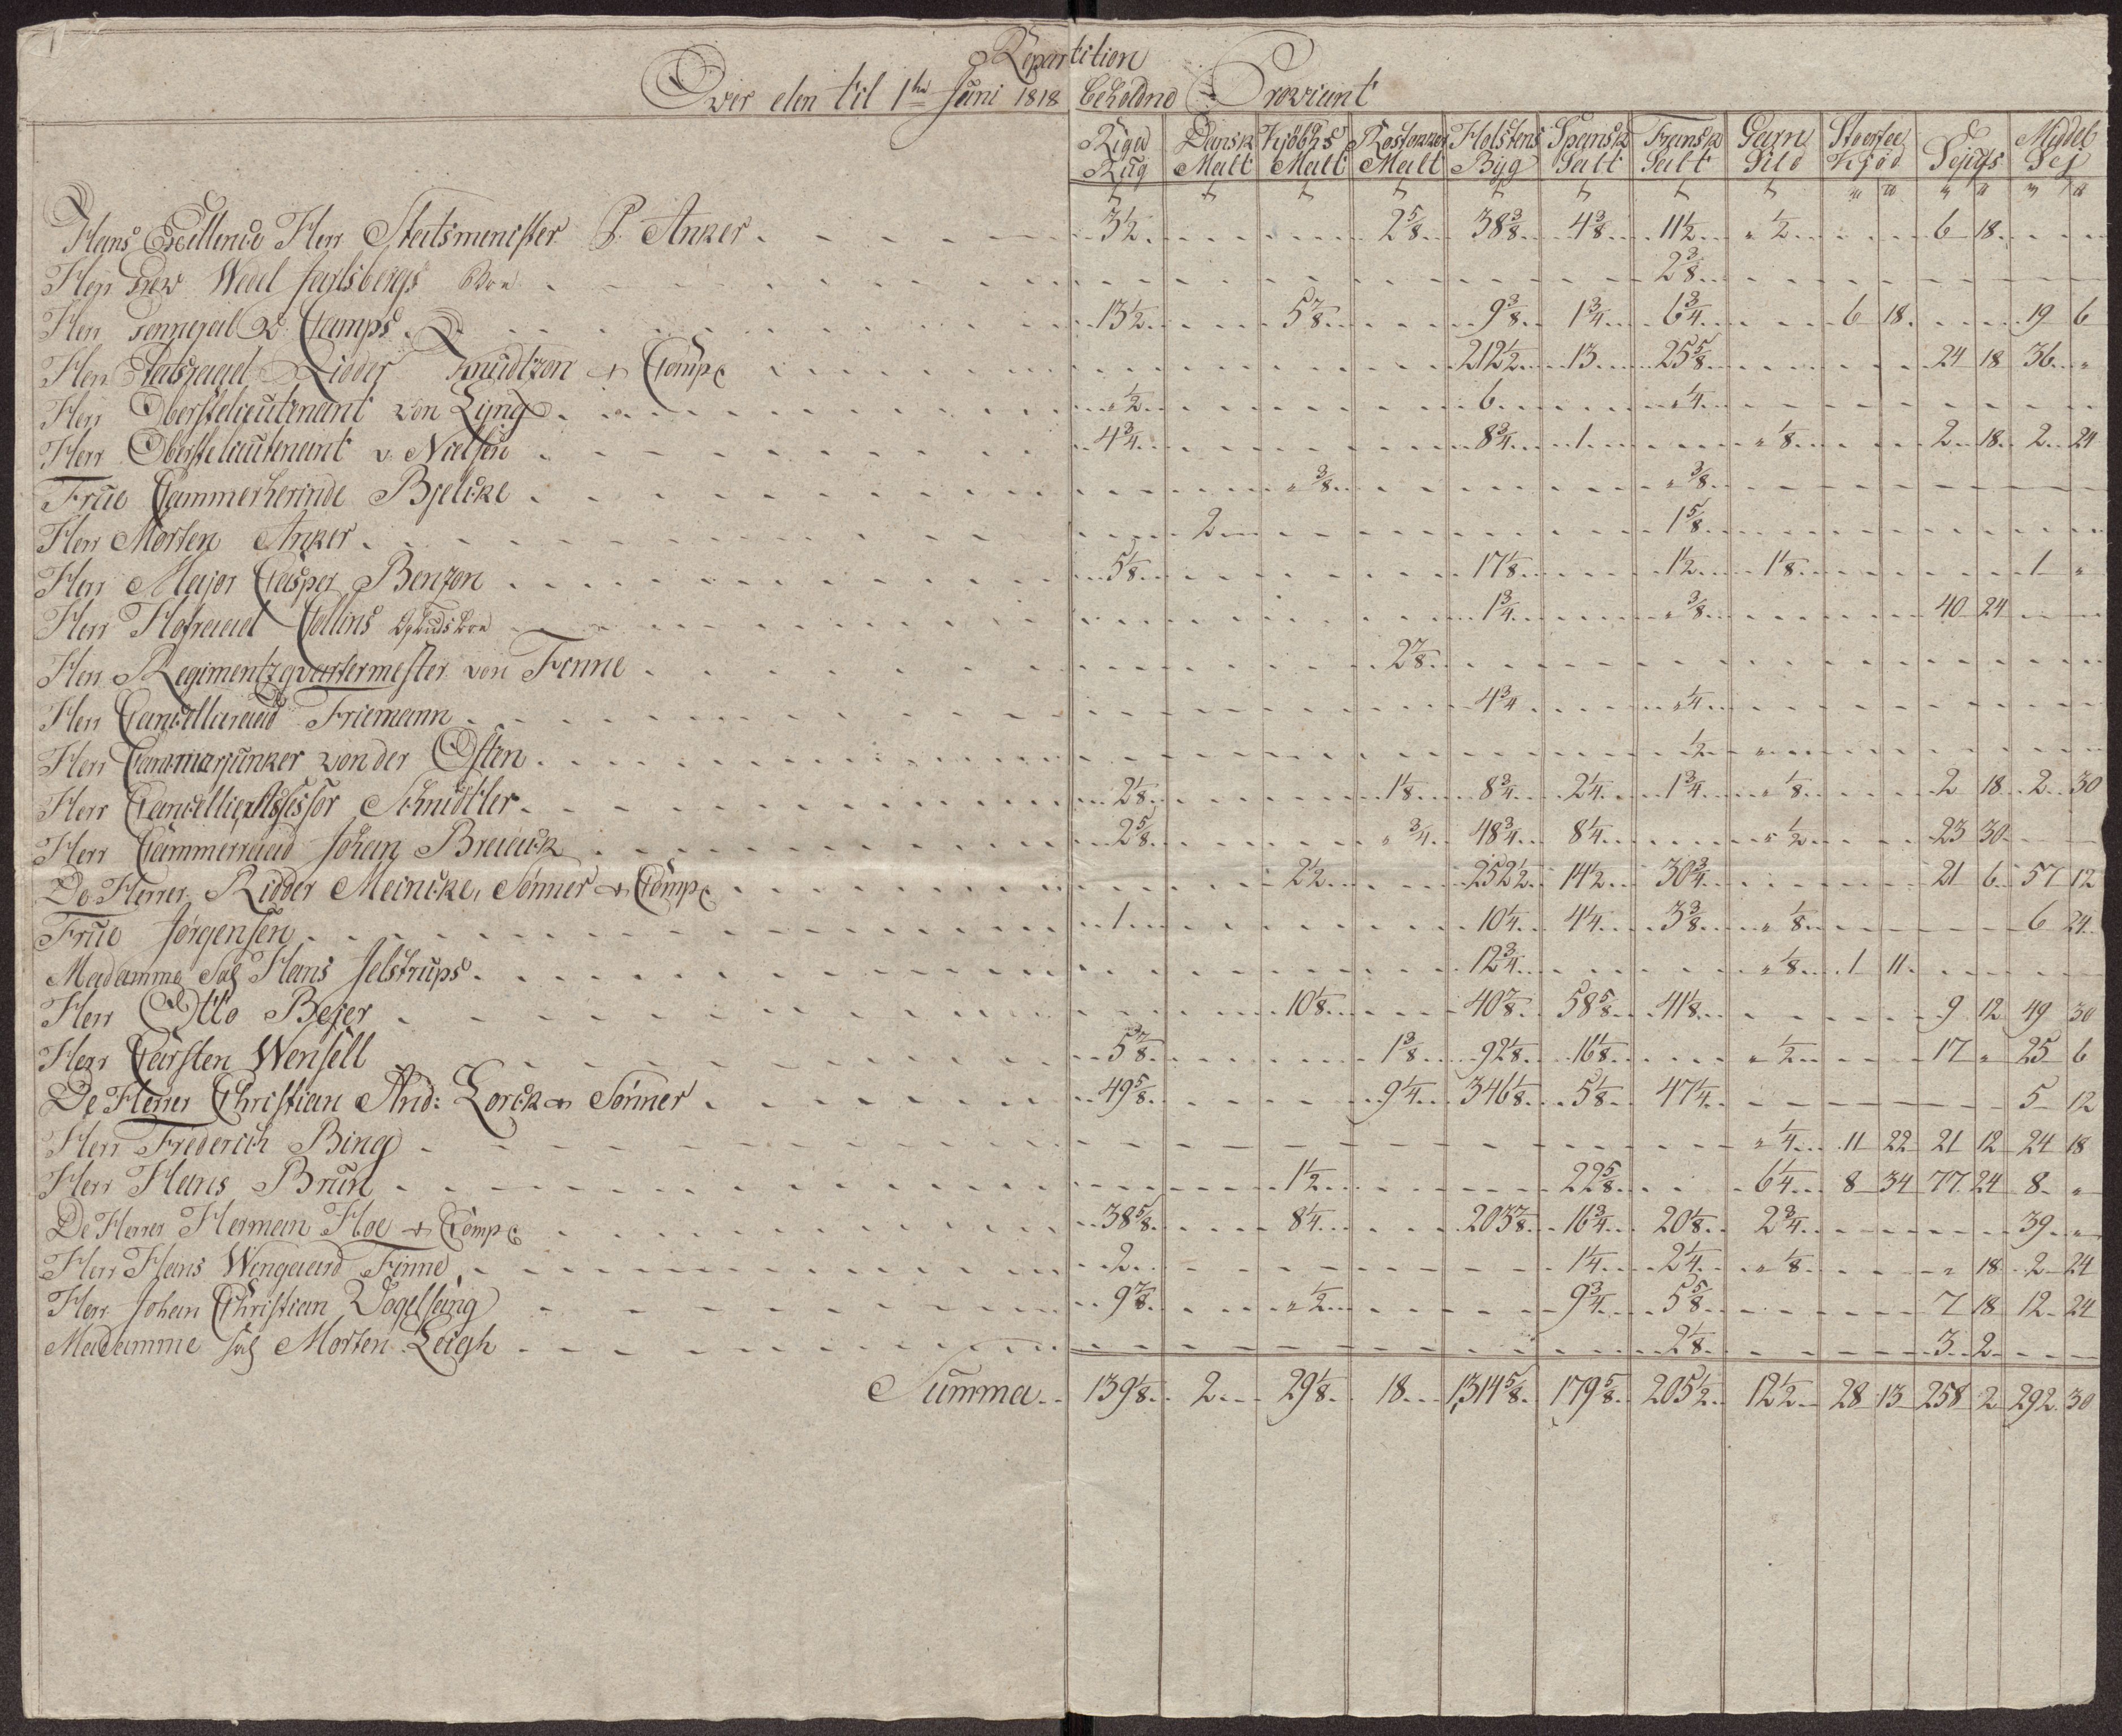 Repartition
Over den til 1te Juni 1818 beholdne Proviant
Riga Rug | Dansk Malt | Kiöbhs Malt | Rostokker Malt | Holstens Byg | Spansk Salt | Fransk Salt | Garn Sild | Kjød | Sejufs | Middel Sej
Hans Excellence Herr Statsminister P. Anker 3½ 2⅝ 38⅜ 4⅜ 11½ " ½ 6 18
Herr Grev Wedel Jarlsbergs 2⅜
Herr & Comps 13½ 5⅞ 9⅜ 1¾ 6¾ 6 18 19 6
Herr Statsraad Ridder Knudtzon & Comp 212½ 13 25⅝ 24 18 36 "
Herr Oberstelieutenant von Lyng " ½ 6 " ¼
Herr Obersteleutenant v. Nielsen 4¾ 8¾ 1 " ⅛ 2 18 2 24
Frue Cammerherinde Bjelcke " ⅜ " ⅜
Herr Morten Anker 2 1⅝
Herr Major Casper Benzon 5⅛ 17⅛ 1½ 1⅛ 1 "
Herr Hofraad Collins 1¾ " ⅜ 40 24
Herr Regimentzqvartermester von Finne 2⅞
Herr Cancelliraad Friemann 4¾ " ¼
Herr Cammerjunker von der Osten ½ "
Herr Cancellie Assessor Schnidtler 2⅛ 1⅛ 8¾ 2¼ 1¾ " ⅛ 2 18 2 30
Herr Cammerraad Johan Breaack 2⅝ " ¾ 48¾ 8¼ " ½ 23 30
De Herrer Ridder Meincke, Sønner & Comp 2½ 252½ 14½ 30¾ 21 6 57 12
Frue Jørgensen 1 10¼ 4¼ 3⅜ " ⅛ 6 24
Madamme Sal Hans Jelstrups 12¾ " ⅛ 1 11
Herr Otto Bejer 10⅛ 40⅞ 58⅝ 41⅛ 9 12 49 30
Herr Carsten Wensell 5⅞ 1⅜ 92⅛ 16⅛ " ½ 17 " 25 6
De Herrer Christian And: Lorck & Sønner 49⅝ 9¼ 346⅛ 5⅛ 47¼ 5 12
Herr Frederich Bing " ¼ 11 22 21 12 24 18
Herr Hans Brun 1½ 22⅝ 6¼ 8 34 77 24 8 "
De Herrer Herman Hoe & Comp 38⅝ 8¼ 203⅞ 16¾ 20⅛ 2¾ 39 "
Herr Hans Wingaard Finne 2 1¼ 2¼ " ⅛ " 18 2 24
Herr Johan Christian Vogelsang 9⅞ " ½ 9¾ 5⅝ 7 18 12 24
Madamme sal Morten Leigh 2⅛ 3 2
Summa 139⅛ 2 29⅛ 18 1314⅝ 179⅝ 205½ 12½ 28 13 258 2 292 30